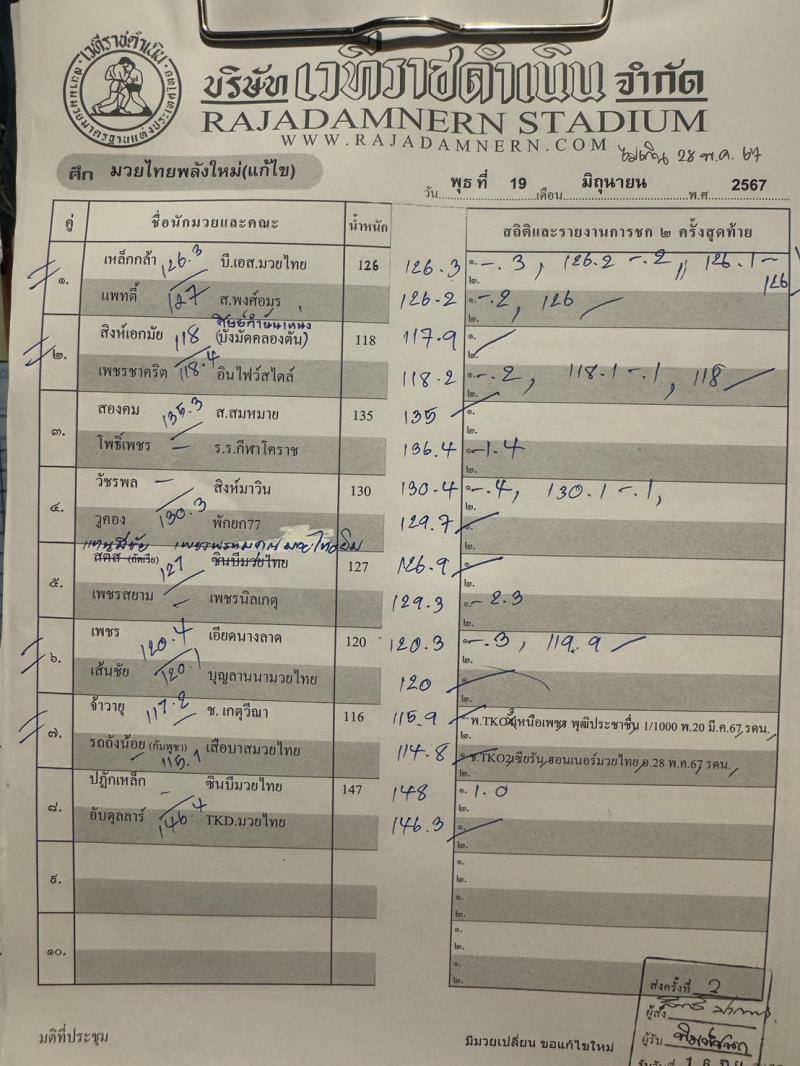 บริษัท เวทีราชดำเนิน จำกัด
RAJADAMNERN STADIUM
WWW.RAJADAMNERN.COM
ไม่เกิน 28 พ.ค. 67
ศึก มวยไทยพลังใหม่(แก้ไข)
วัน พุธ ที่ 19 เดือน มิถุนายน พ.ศ 2567
คู่ ชื่อนักมวยและคณะ น้ำหนัก สถิติและรายงานการชก ๒ ครั้งสุดท้าย
๑. เหล็กกล้า 126.3 บี.เอส.มวยไทย 126 126.3 ๑. -.3, 126.2 -.2, 126.1 - 126
แพทตี้ 127 ส.พงศ์อมร 126.2 ๑. -.2, 126
ศิษย์กำนันเหนง
๒. สิงห์เอกมัย 118 (บังมัดคลองตัน) 118 117.9 ๑.
เพชรชาคริต 118.4 อินไฟว์สไตล์ 118.2 ๑. -.2, 118.1 -.1, 118
๓. สองคม 135.3 ส.สมหมาย 135 135 ๑.
โพธิ์เพชร - ร.ร.กีฬาโคราช 136.4 ๑. -1.4
๔. วัชรพล - สิงห์มาวิน 130 130.4 ๑. -.4, 130.1 -.1,
วูคอง 130.3 พักยก77 129.7 ๑.
๕. สดส (ลัตเวีย) 127 ซินบีมวยไทย 127 126.9 ๑.
เพชรสยาม - เพชรนิลเกตุ 129.3 ๑. -2.3
๖. เพชร 120.4 เอียดนางลาด 120 120.3 ๑. -.3, 119.9
เส้นชัย 120.1 บุญลานนามวยไทย 120 ๑.
๗. จ้าวายุ 117.2 ช. เกตุวีณา 116 115.9 พ.TKO2เหนือเพชร พุฒิประชาชื่น 1/1000 พ.20 มี.ค.67 รดน.
รถถังน้อย (กัมพูชา) 115.1 เสือบาสมวยไทย 114.8 ช.TKO2เซียรัน ฮอนเนอร์มวยไทย อ.28 พ.ค.67 รดน.
๘. ปฏักเหล็ก - ซินบีมวยไทย 147 148 ๑. 1.0
อับดุลลาร์ 146.4 TKD.มวยไทย 146.3 ๑.
๙.
๑๐.
มติที่ประชุม
มีมวยเปลี่ยน ขอแก้ไขใหม่
ส่งครั้งที่ 2
ผู้ส่ง
ผู้รับ